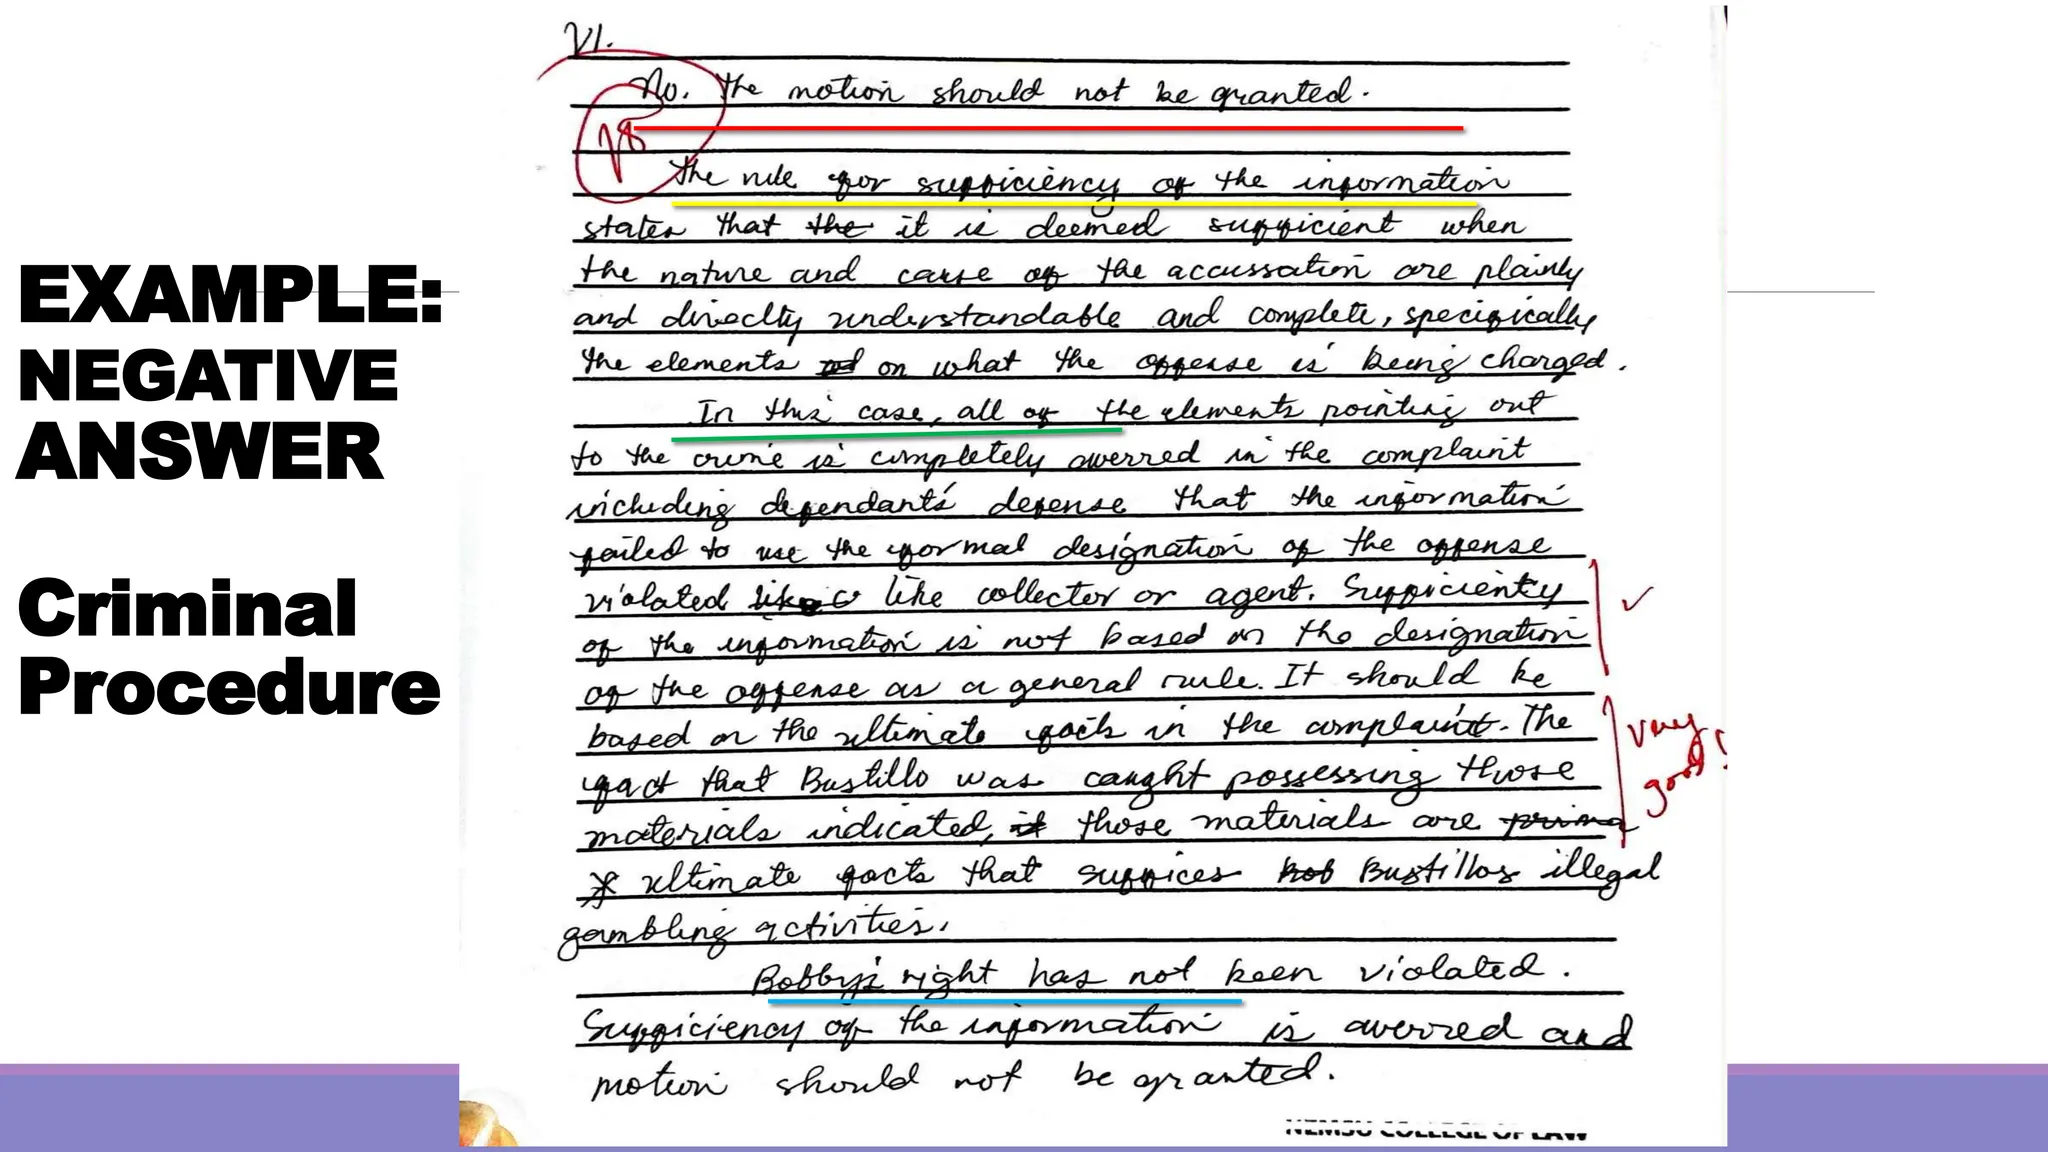 EXAMPLE:
NEGATIVE
ANSWER
Criminal
Procedure
VI.
No. The motion should not be granted.
18
The rule for sufficiency of the information
states that the it is deemed sufficient when
the nature and cause of the accussation are plainly
and direclty understandable and complete, specifically
the elements on what the offense is being charged.
In this case, all of the elements pointing out
to the crime is completely averred in the complaint
including defendant's defense that the information
failed to use the formal designation of the offense
violated like collector or agent. Sufficiency
of the information is not based on the designation
of the offense as a general rule. It should be
based on the ultimate facts in the complaint. The
fact that Bustillo was caught possessing those
materials indicated, it those materials are prima
ultimate facts that suffices Bustillos illegal
gambling activities.
very good!
Bobby's right has not been violated.
Sufficiency of the information is averred and
motion should not be granted.
NEMSU COLLEGE OF LAW